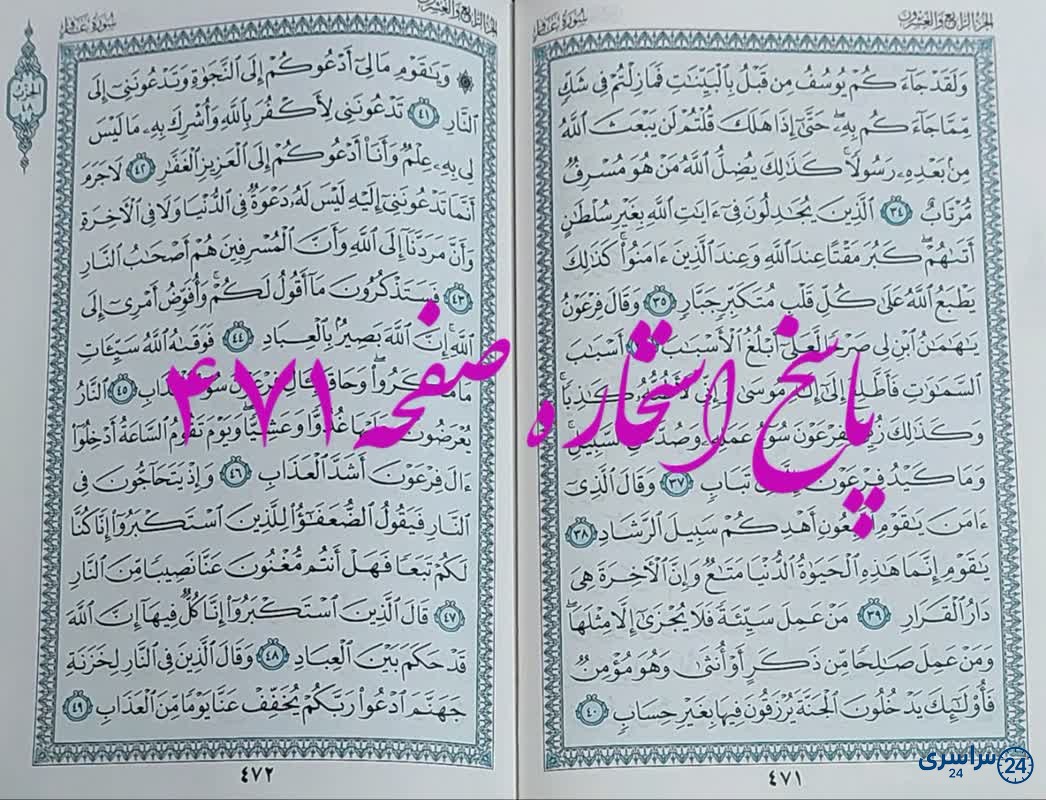 الجزء الرابع والعشرون
سورة غافر
وَلَقَدْ جَاءَكُمْ يُوسُفُ مِن قَبْلُ بِالْبَيِّنَٰتِ فَمَا زِلْتُمْ فِى شَكٍّ
مِّمَّا جَاءَكُم بِهِۦ حَتَّىٰ إِذَا هَلَكَ قُلْتُمْ لَن يَبْعَثَ ٱللَّهُ
مِنۢ بَعْدِهِۦ رَسُولًا كَذَٰلِكَ يُضِلُّ ٱللَّهُ مَنْ هُوَ مُسْرِفٌ
مُّرْتَابٌ ٣٤ ٱلَّذِينَ يُجَٰدِلُونَ فِىٓ ءَايَٰتِ ٱللَّهِ بِغَيْرِ سُلْطَٰنٍ
أَتَىٰهُمْ كَبُرَ مَقْتًا عِندَ ٱللَّهِ وَعِندَ ٱلَّذِينَ ءَامَنُوا۟ كَذَٰلِكَ
يَطْبَعُ ٱللَّهُ عَلَىٰ كُلِّ قَلْبِ مُتَكَبِّرٍ جَبَّارٍ ٣٥ وَقَالَ فِرْعَوْنُ
يَٰهَٰمَٰنُ ٱبْنِ لِى صَرْحًا لَّعَلِّىٓ أَبْلُغُ ٱلْأَسْبَٰبَ أَسْبَٰبَ
ٱلسَّمَٰوَٰتِ فَأَطَّلِعَ إِلَىٰٓ إِلَٰهِ مُوسَىٰ وَإِنِّى لَأَظُنُّهُۥ كَٰذِبًا
وَكَذَٰلِكَ زُيِّنَ لِفِرْعَوْنَ سُوٓءُ عَمَلِهِۦ وَصُدَّ عَنِ ٱلسَّبِيلِ
وَمَا كَيْدُ فِرْعَوْنَ إِلَّا فِى تَبَابٍ ٣٧ وَقَالَ ٱلَّذِىٓ
ءَامَنَ يَٰقَوْمِ ٱتَّبِعُونِ أَهْدِكُمْ سَبِيلَ ٱلرَّشَادِ ٣٨
يَٰقَوْمِ إِنَّمَا هَٰذِهِ ٱلْحَيَوٰةُ ٱلدُّنْيَا مَتَٰعٌ وَإِنَّ ٱلْأٓخِرَةَ هِىَ
دَارُ ٱلْقَرَارِ ٣٩ مَنْ عَمِلَ سَيِّئَةً فَلَا يُجْزَىٰٓ إِلَّا مِثْلَهَا
وَمَنْ عَمِلَ صَٰلِحًا مِّن ذَكَرٍ أَوْ أُنثَىٰ وَهُوَ مُؤْمِنٌ
فَأُو۟لَٰٓئِكَ يَدْخُلُونَ ٱلْجَنَّةَ يُرْزَقُونَ فِيهَا بِغَيْرِ حِسَابٍ ٤٠
٤٧١
الجزء الرابع والعشرون
سورة غافر
الحزب
٤٨
وَيَٰقَوْمِ مَا لِىٓ أَدْعُوكُمْ إِلَى ٱلنَّجَوٰةِ وَتَدْعُونَنِىٓ إِلَى
ٱلنَّارِ ٤١ تَدْعُونَنِى لِأَكْفُرَ بِٱللَّهِ وَأُشْرِكَ بِهِۦ مَا لَيْسَ
لِى بِهِۦ عِلْمٌ وَأَنَا۠ أَدْعُوكُمْ إِلَى ٱلْعَزِيزِ ٱلْغَفَّٰرِ ٤٢ لَا جَرَمَ
أَنَّمَا تَدْعُونَنِىٓ إِلَيْهِ لَيْسَ لَهُۥ دَعْوَةٌ فِى ٱلدُّنْيَا وَلَا فِى ٱلْأٓخِرَةِ
وَأَنَّ مَرَدَّنَآ إِلَى ٱللَّهِ وَأَنَّ ٱلْمُسْرِفِينَ هُمْ أَصْحَٰبُ ٱلنَّارِ
٤٣ فَسَتَذْكُرُونَ مَآ أَقُولُ لَكُمْ وَأُفَوِّضُ أَمْرِىٓ إِلَى
ٱللَّهِ إِنَّ ٱللَّهَ بَصِيرٌۢ بِٱلْعِبَادِ ٤٤ فَوَقَىٰهُ ٱللَّهُ سَيِّـَٔاتِ
مَا مَكَرُوا۟ وَحَاقَ بِـَٔالِ فِرْعَوْنَ سُوٓءُ ٱلْعَذَابِ ٤٥ ٱلنَّارُ
يُعْرَضُونَ عَلَيْهَا غُدُوًّا وَعَشِيًّا وَيَوْمَ تَقُومُ ٱلسَّاعَةُ أَدْخِلُوٓا۟
ءَالَ فِرْعَوْنَ أَشَدَّ ٱلْعَذَابِ ٤٦ وَإِذْ يَتَحَآجُّونَ فِى
ٱلنَّارِ فَيَقُولُ ٱلضُّعَفَٰٓؤُا۟ لِلَّذِينَ ٱسْتَكْبَرُوٓا۟ إِنَّا كُنَّا
لَكُمْ تَبَعًا فَهَلْ أَنتُم مُّغْنُونَ عَنَّا نَصِيبًا مِّنَ ٱلنَّارِ
٤٧ قَالَ ٱلَّذِينَ ٱسْتَكْبَرُوٓا۟ إِنَّا كُلٌّ فِيهَآ إِنَّ ٱللَّهَ
قَدْ حَكَمَ بَيْنَ ٱلْعِبَادِ ٤٨ وَقَالَ ٱلَّذِينَ فِى ٱلنَّارِ لِخَزَنَةِ
جَهَنَّمَ ٱدْعُوا۟ رَبَّكُمْ يُخَفِّفْ عَنَّا يَوْمًا مِّنَ ٱلْعَذَابِ ٤٩
٤٧٢
پاسخ استخاره صفحه ۴۷۱
سراسری 24
24